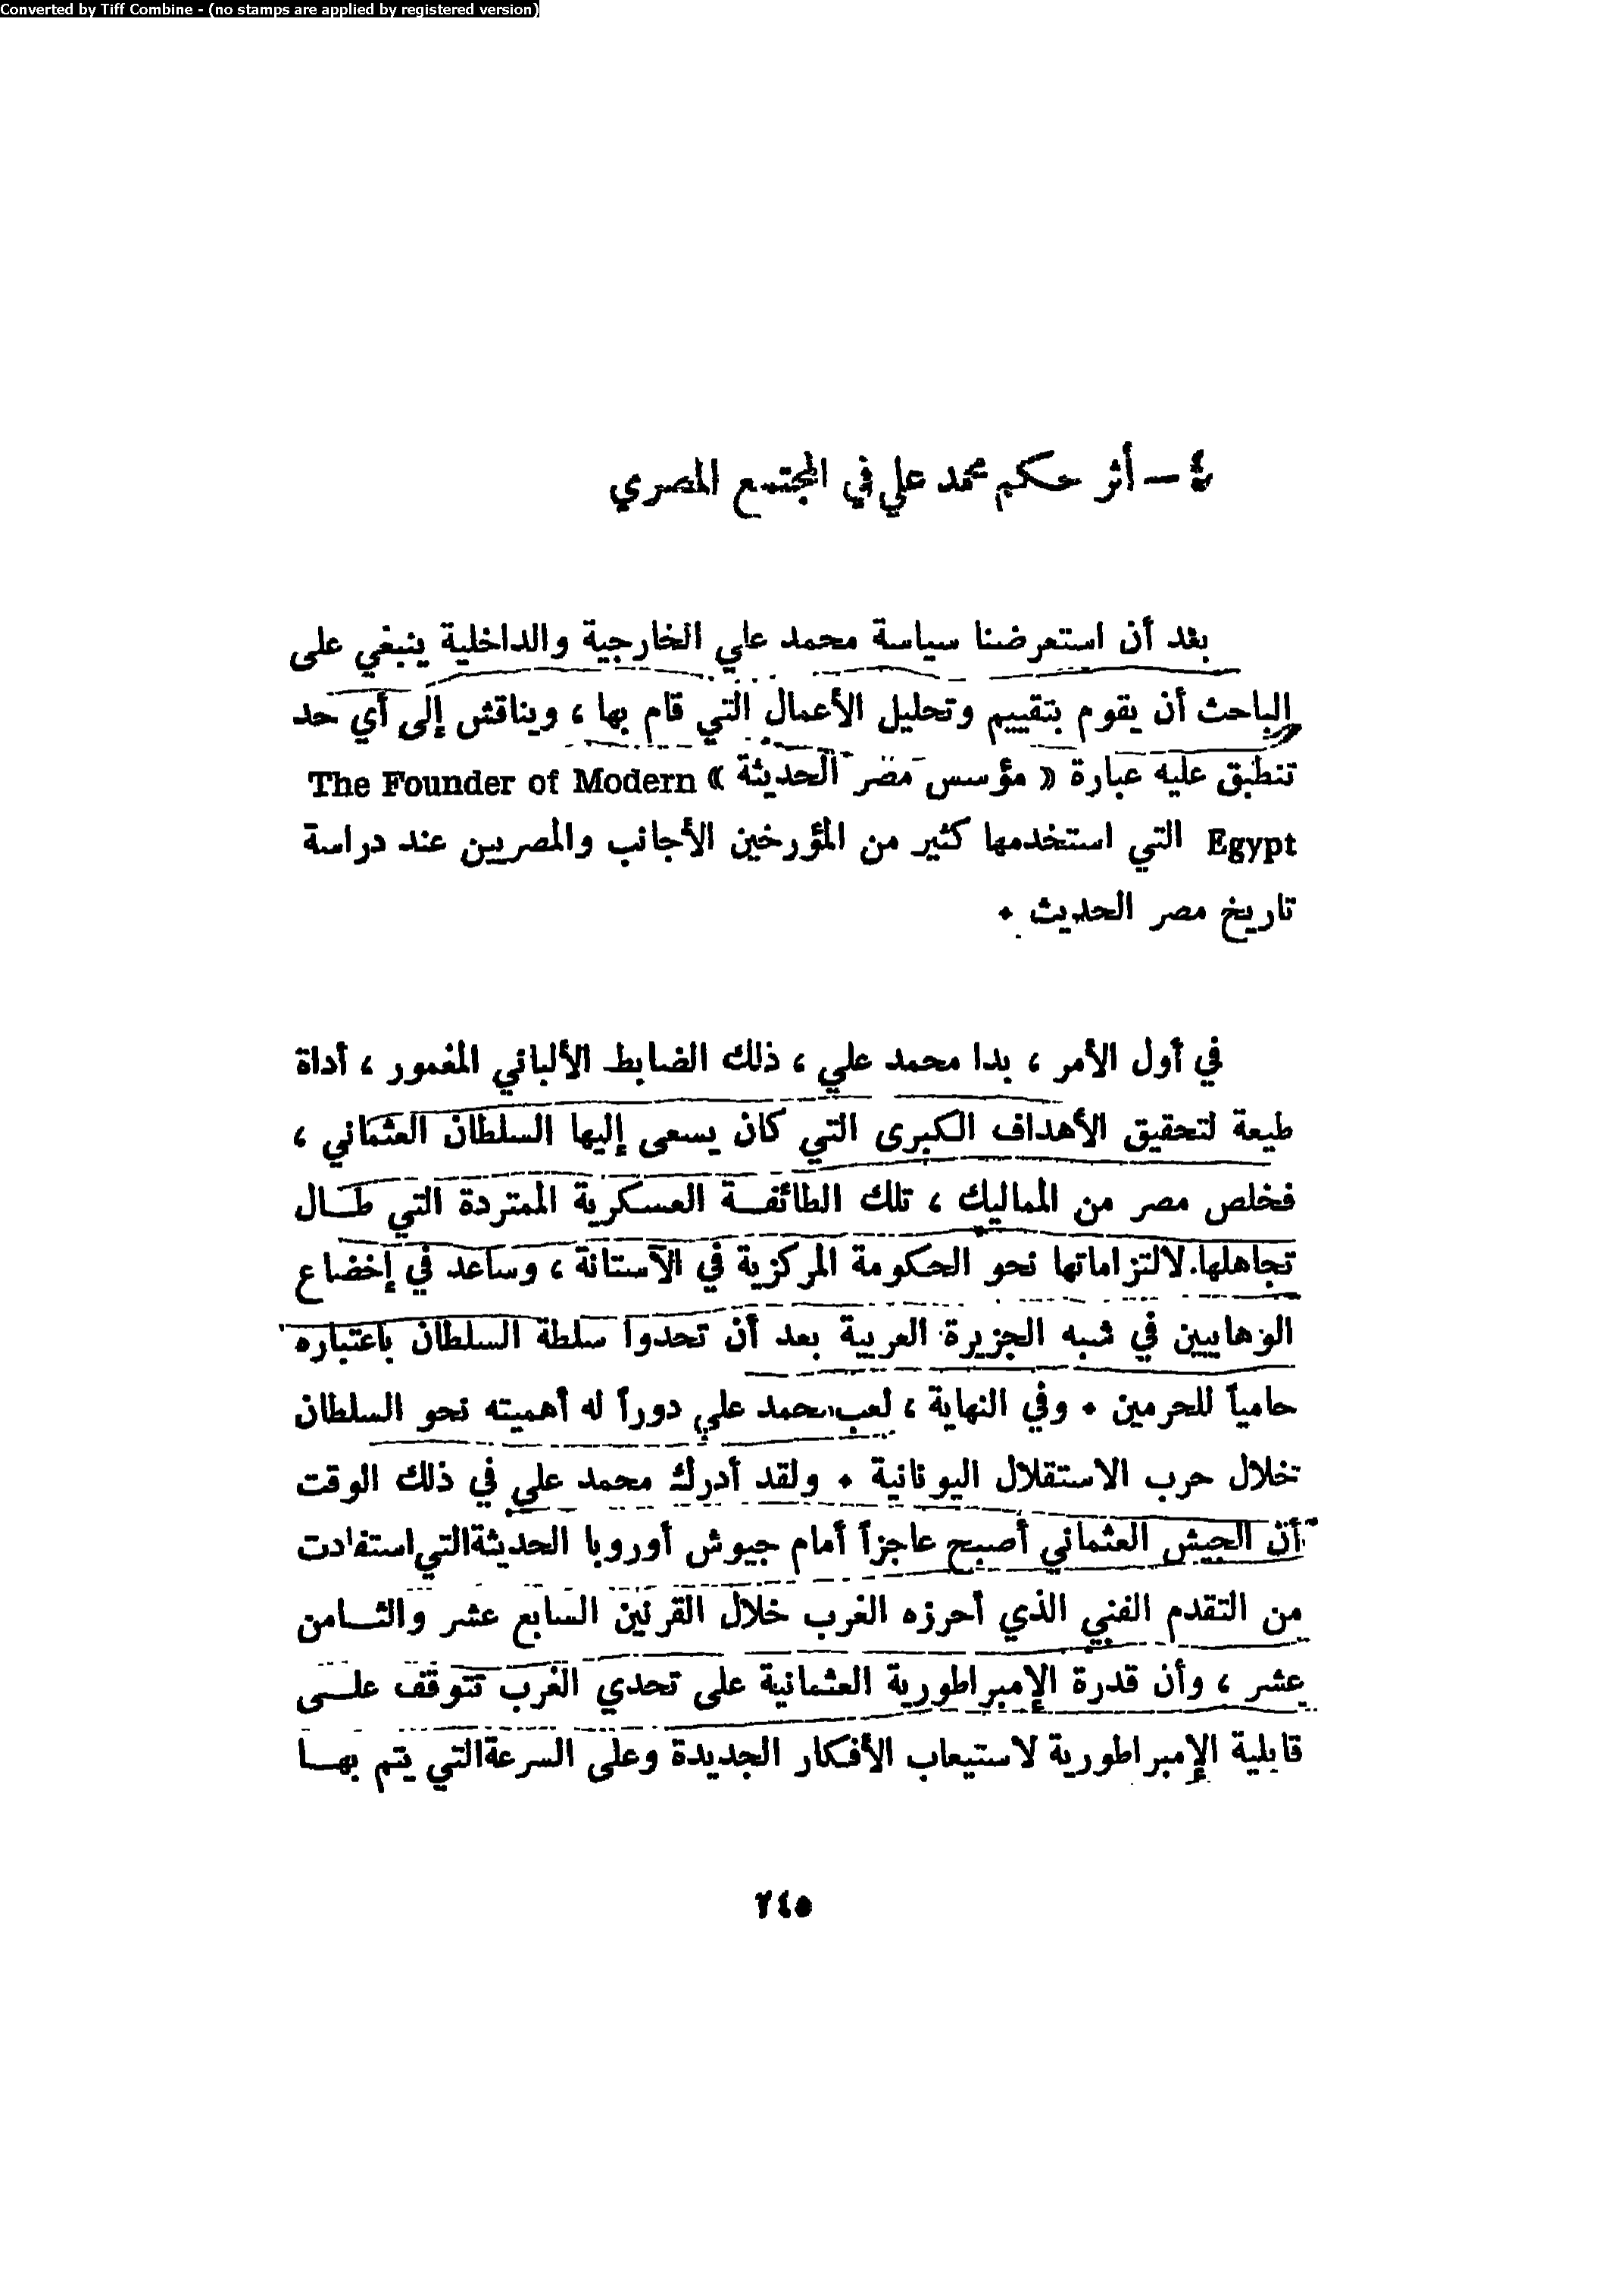 Converted by Tiff Combine - (no stamps are applied by registered version)
٤ — أثر حكم محمد علي في المجتمع المصري
بعد أن استعرضنا سياسة محمد علي الخارجية والداخلية ينبغي على
الباحث أن يقوم بتقييم وتحليل الأعمال التي قام بها ، ويناقش إلى أي حد
تنطبق عليه عبارة « مؤسس مصر الحديثة » The Founder of Modern
Egypt التي استخدمها كثير من المؤرخين الأجانب والمصريين عند دراسة
تاريخ مصر الحديث .
في أول الأمر ، بدا محمد علي ، ذلك الضابط الألباني المغمور ، أداة
طيعة لتحقيق الأهداف الكبرى التي كان يسعى إليها السلطان العثماني ،
فخلص مصر من المماليك ، تلك الطائفة العسكرية المتمردة التي طال
تجاهلها لالتزاماتها نحو الحكومة المركزية في الآستانة ، وساعد في إخضاع
الوهابيين في شبه الجزيرة العربية بعد أن تحدوا سلطة السلطان باعتباره
حامياً للحرمين . وفي النهاية ، لعب محمد علي دوراً له أهميته نحو السلطان
خلال حرب الاستقلال اليونانية . ولقد أدرك محمد علي في ذلك الوقت
أن الجيش العثماني أصبح عاجزاً أمام جيوش أوروبا الحديثة التي استفادت
من التقدم الفني الذي أحرزه الغرب خلال القرنين السابع عشر والثامن
عشر ، وأن قدرة الإمبراطورية العثمانية على تحدي الغرب تتوقف على
قابلية الإمبراطورية لاستيعاب الأفكار الجديدة وعلى السرعة التي يتم بها
٢٤٥